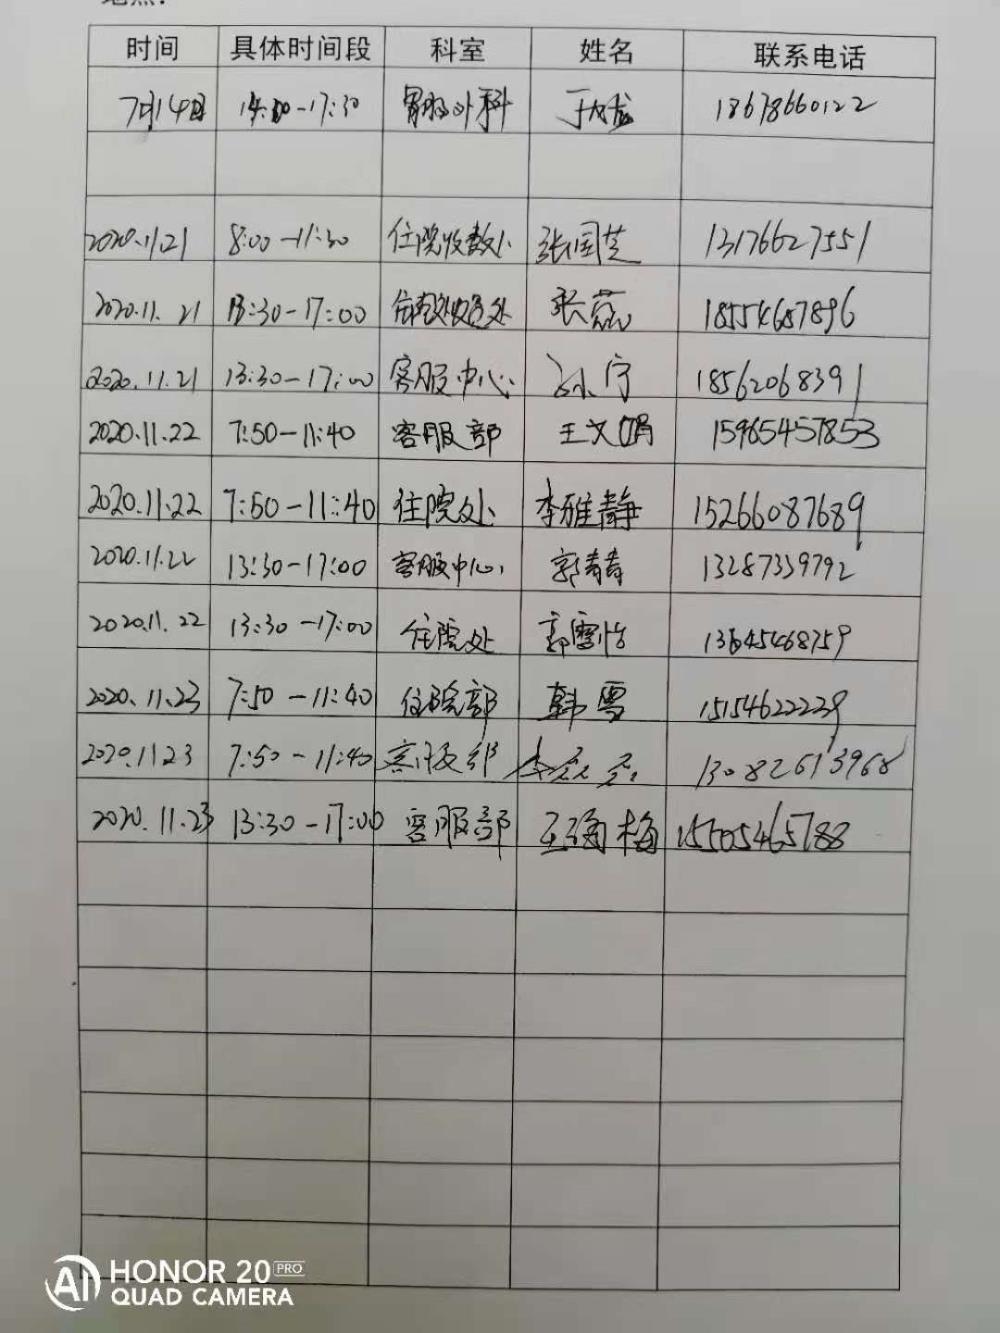 时间 具体时间段 科室 姓名 联系电话
7月14日 14:00-17:30 胃肠外科 于成龙 18678660122
2020.11.21 8:00-11:30 住院收费处 张国芝 13176627551
2020.11.21 13:30-17:00 处 张蕊 18554687896
2020.11.21 13:30-17:00 客服中心 孙宁 18562068391
2020.11.22 7:50-11:40 客服部 王文娟 15965457853
2020.11.22 7:50-11:40 住院处 李雅静 15266087689
2020.11.22 13:30-17:00 客服中心 郭青青 13287339792
2020.11.22 13:30-17:00 住院处 郭雪怡 13645468759
2020.11.23 7:50-11:40 住院部 韩雪 15154622239
2020.11.23 7:50-11:40 客服部 李 13082613968
2020.11.23 13:30-17:00 客服部 王海梅 15505465788
HONOR 20 PRO
AI QUAD CAMERA